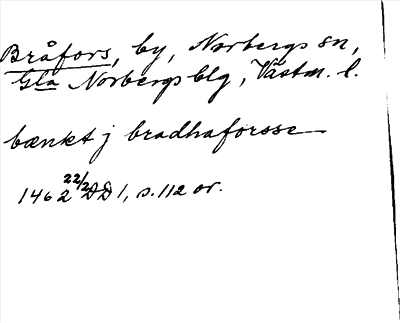 Bråfors, by, Norbergs sn,
Gla Norbergs blg, Västm. l.
bænkt j bradhaforsse
1462 22/2 DD 1, s. 112 or.